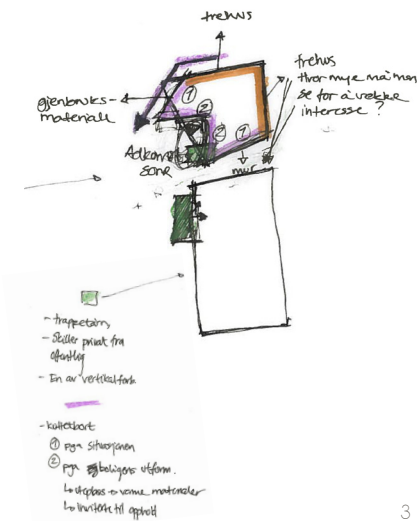 trehus
trehus
Hvor mye må man
se for å vekke
interesse?
gjenbruks-
materiale
①
②
②
②
Adkomst
sone
mur
- trappetårn
- Skiller privat fra
offentlig
- En av vertikal form
- kuttet bort
① pga situasjonen
② pga boligens utform.
↳ uteplass → varme materialer
↳ invitere til opphold
3